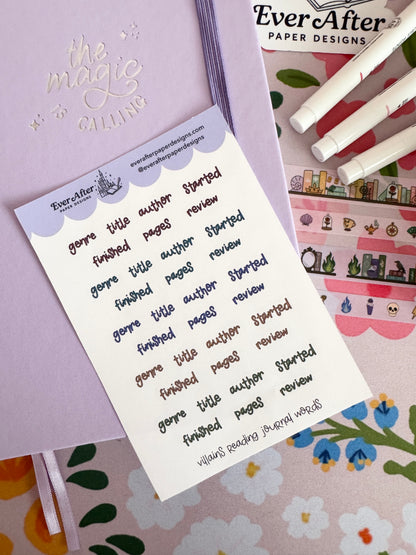 the
magic
is
CALLING
EVER AFTER
PAPER DESIGNS
everafterpaperdesigns.com
@everafterpaperdesigns
Ever After
PAPER DESIGNS
genre title author started
finished pages review
genre title author started
finished pages review
genre title author started
finished pages review
genre title author started
finished pages review
genre title author started
finished pages review
villains reading journal words